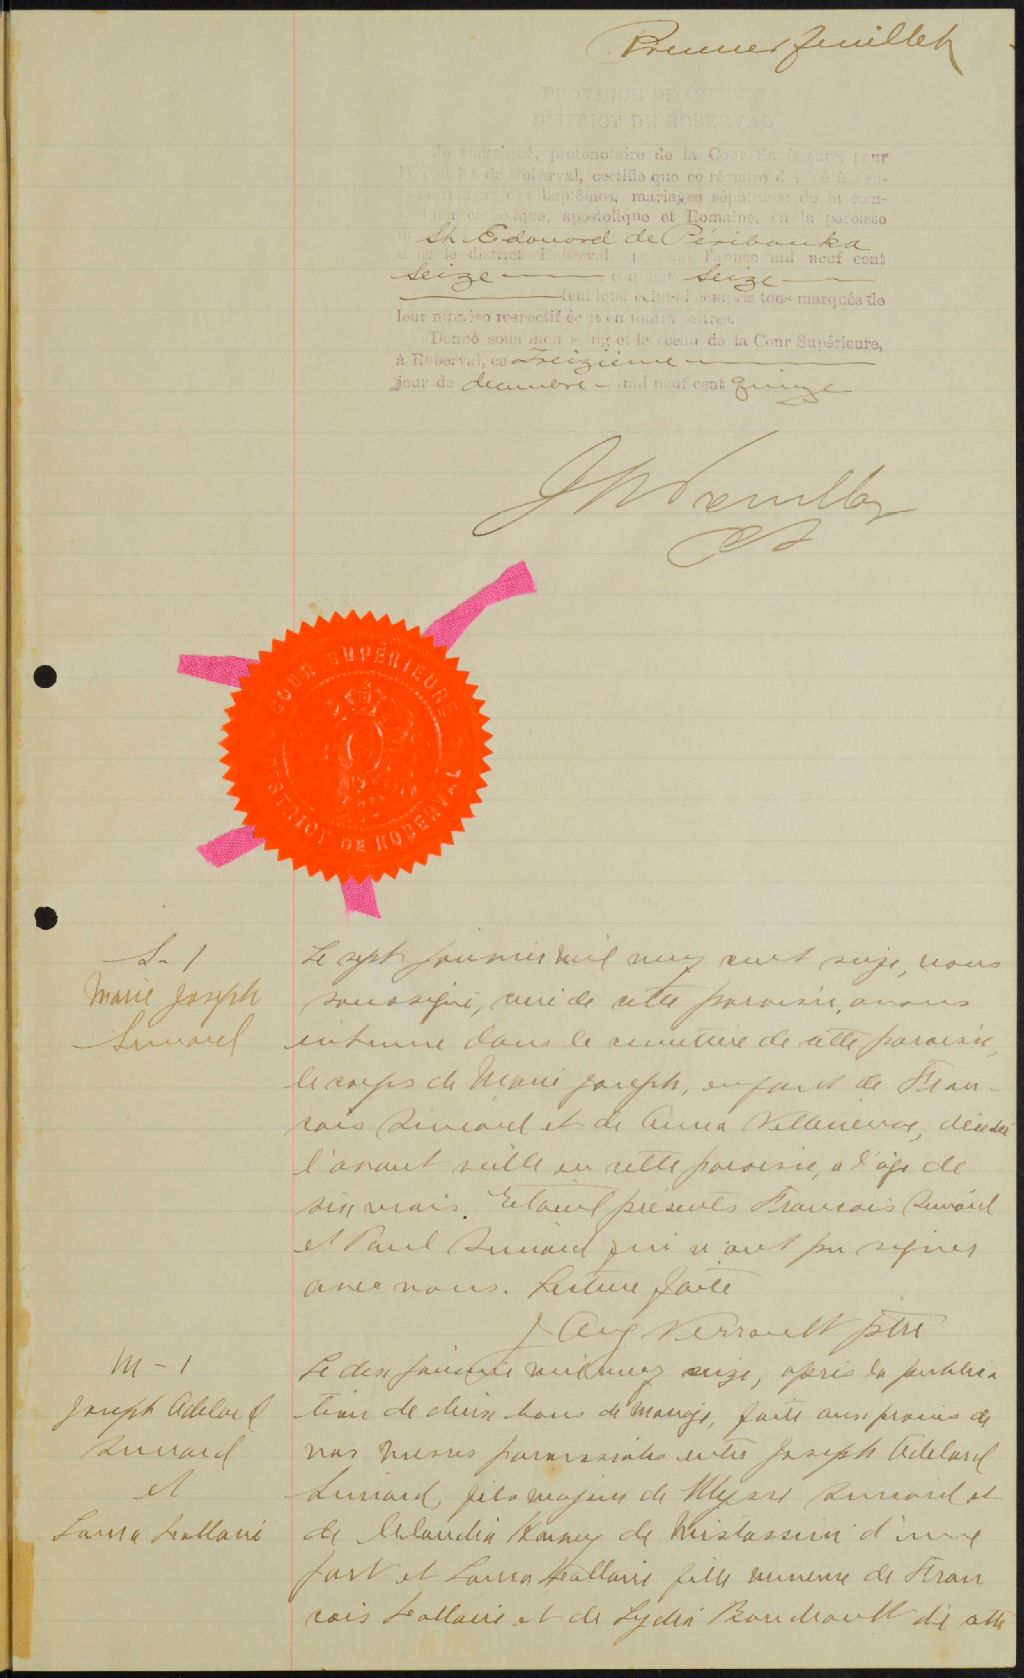 Premier feuillet
PROVINCE DE QUEBEC
DISTRICT DE ROBERVAL
Je soussigné, protonotaire de la Cour Supérieure, pour
le district de Roberval, certifie que ce régistre destiné à l'en-
des baptêmes, mariages sépultures de la com-
munion catholique, apostolique et Romaine, en la paroisse
de St. Edouard de Péribonka
dans le district Roberval, pour l'année mil neuf cent
seize contient seize
feuillets, celui-ci compris tous marqués de
leur numéro respectif écrit en toutes lettres.
Donné sous mon seing et le sceau de la Cour Supérieure,
à Roberval, ce treizième
jour de decembre mil neuf cent quinze
COUR SUPÉRIEURE
DISTRICT DE ROBERVAL
S-1
Marie Joseph
Simard
Le sept janvier mil neuf cent seize, nous
soussigné, curé de cette paroisse, avons
inhumé dans le cimetière de cette paroisse,
le corps de Marie Joseph, enfant de Fran-
cois Simard et de Anna Villeneuve, décédé
l'avant veille en cette paroisse, a l'âge de
six mois. Etaient présents Francois Simard
et Paul Simard qui n'ont pu signer
avec nous. Lecture faite
J Aug Verreault ptre
M-1
Joseph Adelard
Simard
et
Laura Lallarie
Le dix janvier mil neuf seize, après la publica
tion de deux bans de Mariage, faite aux prones de
nos messes paroissiales entre Joseph Adelard
Simard, fils majeur de Ulysse Simard et
de Claudia de Mistassini d'une
part et Laura fille mineure de Fran
cois et de Lydia Boudreault de cette